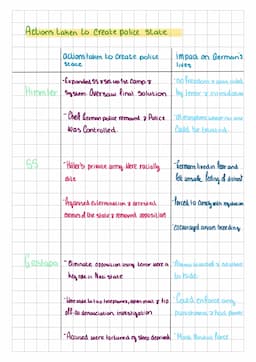 Actions taken to create police state
Actions taken to create police
state
Impact on German's
lives
Himmler
- Expanded SS & set up the camp &
system. Oversaw final solution
- No freedom & were ruled
by terror & intimidation
- Chief German police removed & Police
was controlled.
could be trusted.
SS
- Hitler's private army were racially
elite
- Germans lived in fear and
felt unsafe, feeling of distrust
- Organised extermination & arrested
enemies of the state & removed opposition
- Forced to comply with
- encouraged aryan breeding
Gestapo
- Eliminate opposition using terror were a
key role in Nazi state
to hide
- Use able to tap telephones, open mail & tip
off to denunciation investigation
- Could enforce any
punishment & had power
- Accused were tortured eg sleep deprived
- Force